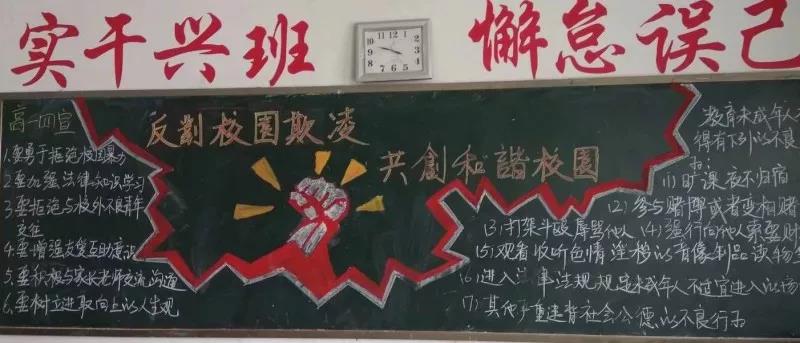 实干兴班 懈怠误己
高一四宣
1.要勇于拒绝校园暴力
2.要加强法律知识学习
3.要拒绝与校外不良青年
交往
4.要增强友爱互助意识
5.要积极与家长老师交流沟通
6.要树立进取向上的人生观
反對校園欺凌
共創和諧校園
教育未成年人不
得有下列的不良
(1)旷课夜不归宿
(2)参与赌博或者变相赌
(3)打架斗殴辱骂他人 (4)强行向他人索要财
(5)观看收听色情淫秽的音像制品读物
(6)进入法律法规规定未成年人不宜进入的场
(7)其他严重违背社会公德的不良行为